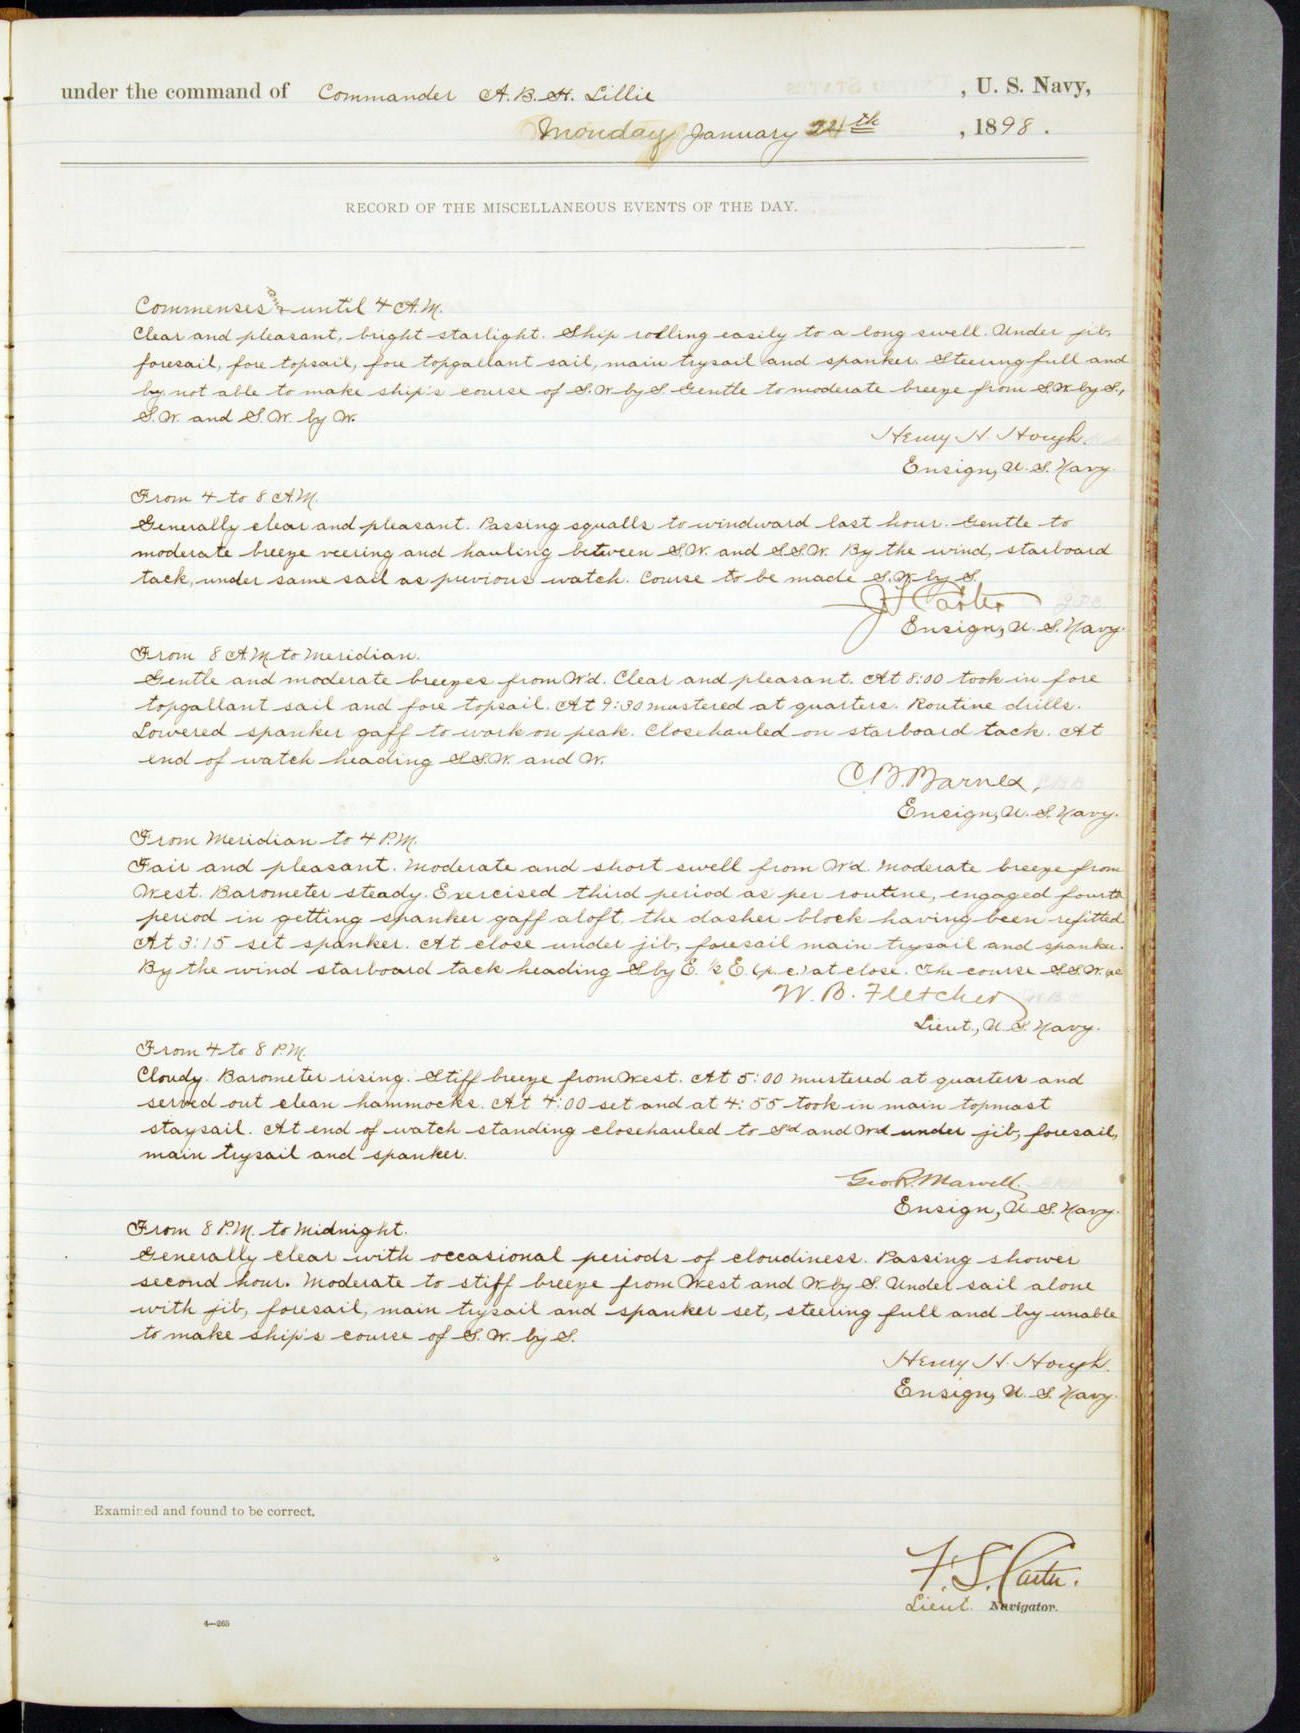 under the command of Commander A. B. H. Lillie , U. S. Navy,
Monday January 24th , 1898 .
RECORD OF THE MISCELLANEOUS EVENTS OF THE DAY.
Commenses and until 4 A.M.
Clear and pleasant, bright starlight. Ship rolling easily to a long swell. Under jib,
foresail, fore topsail, fore topgallant sail, main trysail and spanker. Steering full and
by not able to make ship's course of S.W. by S. Gentle to moderate breeze from S.W. by S.,
S.W. and S.W. by W.
Henry H. Hough.
Ensign, U. S. Navy.
From 4 to 8 A.M.
Generally clear and pleasant. Passing squalls to windward last hour. Gentle to
moderate breeze veering and hauling between S.W. and S.S.W. By the wind, starboard
tack, under same sail as previous watch. Course to be made S.W. by S.
J F Carter
Ensign, U. S. Navy.
From 8 A.M. to Meridian.
Gentle and moderate breezes from W'd. Clear and pleasant. At 8:00 took in fore
topgallant sail and fore topsail. At 9:30 mustered at quarters. Routine drills.
Lowered spanker gaff to work on peak. Closehauled on starboard tack. At
end of watch heading S.S.W. and W.
C. B. Barnes,
Ensign, U. S. Navy.
From Meridian to 4 P.M.
Fair and pleasant. Moderate and short swell from W'd. Moderate breeze from
West. Barometer steady. Exercised third period as per routine, engaged fourth
period in getting spanker gaff aloft the dasher block having been refitted
At 3:15 set spanker. At close under jib, foresail main trysail and spanker.
By the wind starboard tack heading S by E. ½ E. (p. c.) at close. The course S.S.W.
W. B. Fletcher
Lieut., U. S. Navy.
From 4 to 8 P.M.
Cloudy. Barometer rising. Stiff breeze from West. At 5:00 mustered at quarters and
served out clean hammocks. At 4:00 set and at 4:55 took in main topmast
staysail. At end of watch standing closehauled to S'd and W'd under jib, foresail,
main trysail and spanker.
Geo R. Marvell.
Ensign, U. S. Navy.
From 8 P.M. to Midnight.
Generally clear with occasional periods of cloudiness. Passing shower
second hour. Moderate to stiff breeze from West and W by S. Under sail alone
with jib, foresail, main trysail and spanker set, steering full and by unable
to make ship's course of S. W. by S.
Henry H. Hough.
Ensign, U. S. Navy.
Examined and found to be correct.
F. S. Carter.
Lieut. Navigator.
4—265